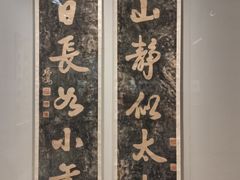 山静似太
日長如小